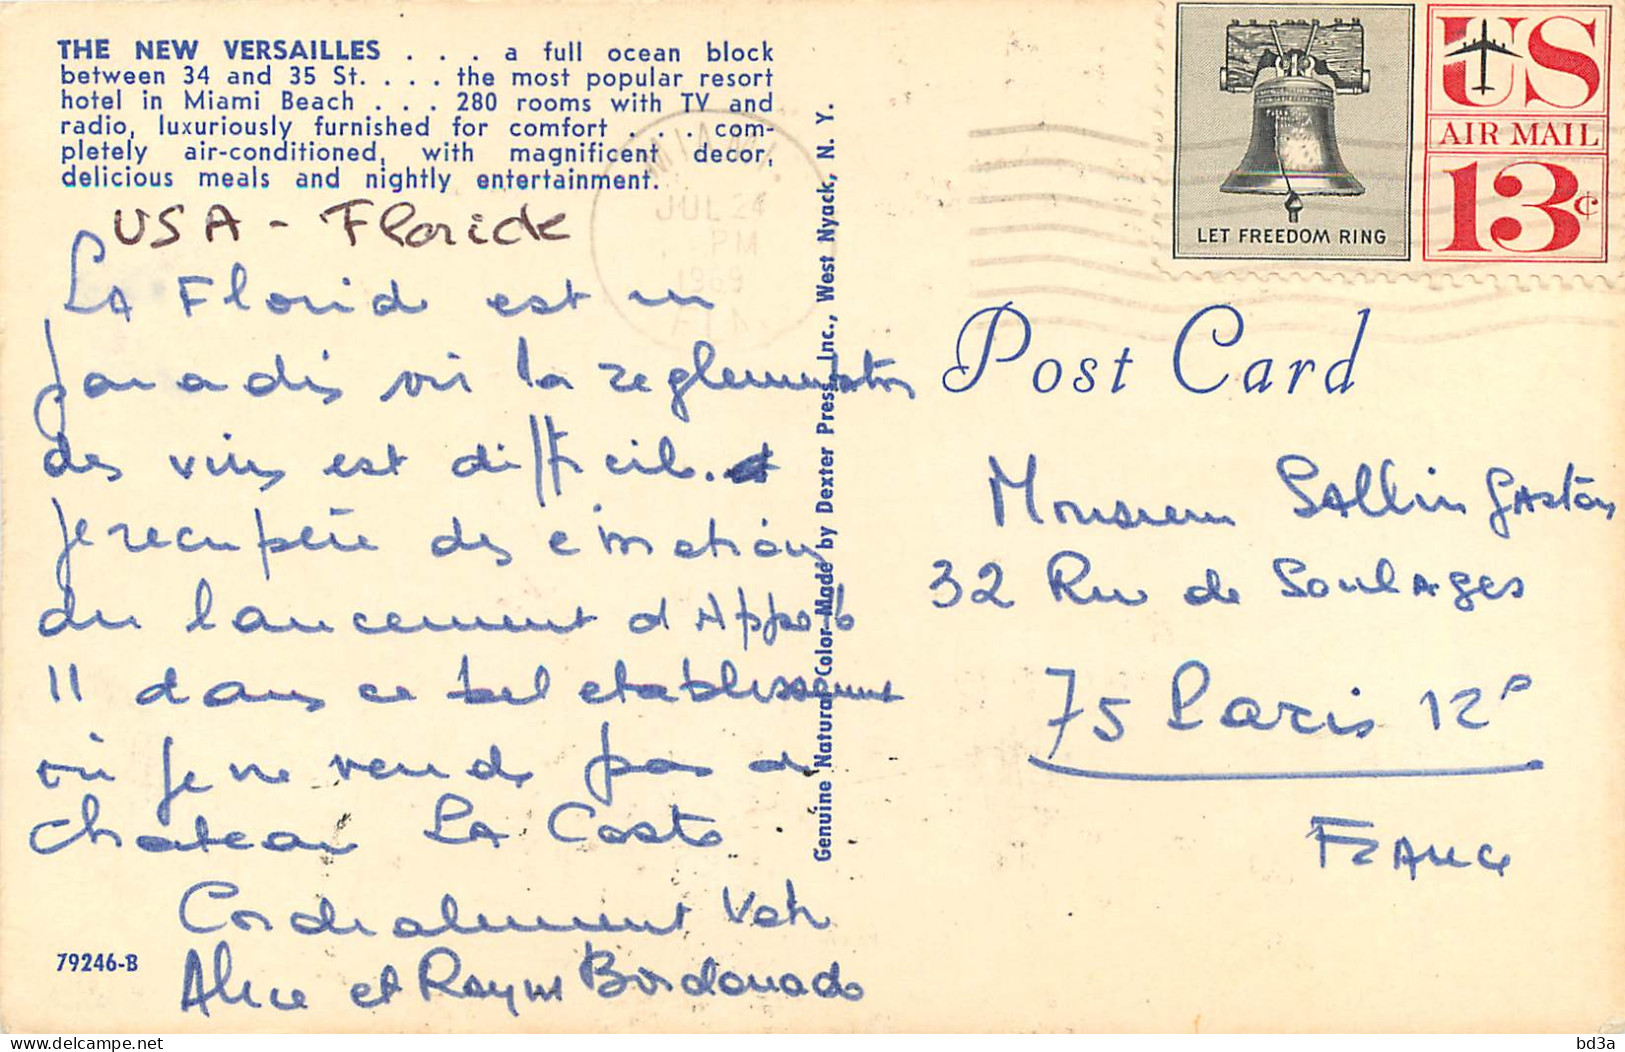 THE NEW VERSAILLES . . . a full ocean block
between 34 and 35 St. . . . the most popular resort
hotel in Miami Beach . . . 280 rooms with TV and
radio, luxuriously furnished for comfort . . . com-
pletely air-conditioned, with magnificent decor,
delicious meals and nightly entertainment.
USA - Floride
LA Florid est un
paradis où la reglementation
des vins est difficile. et
Je recupère des émotions
du lancement d'Appolo
11 dans ce bel etablissement
où je ne vends pas de
chateau LA Coste
Cordialement Votre
Alice et Raym Bordonado
79246-B
Genuine Natural Color Made by Dexter Press, Inc., West Nyack, N. Y.
MIAMI.
JUL 24
PM
1969
FLA.
LET FREEDOM RING
US
AIR MAIL
13¢
Post Card
Monsieur SALLin GAston
32 Rue de SoulAges
75 Paris 12e
FRANCE
bd3a